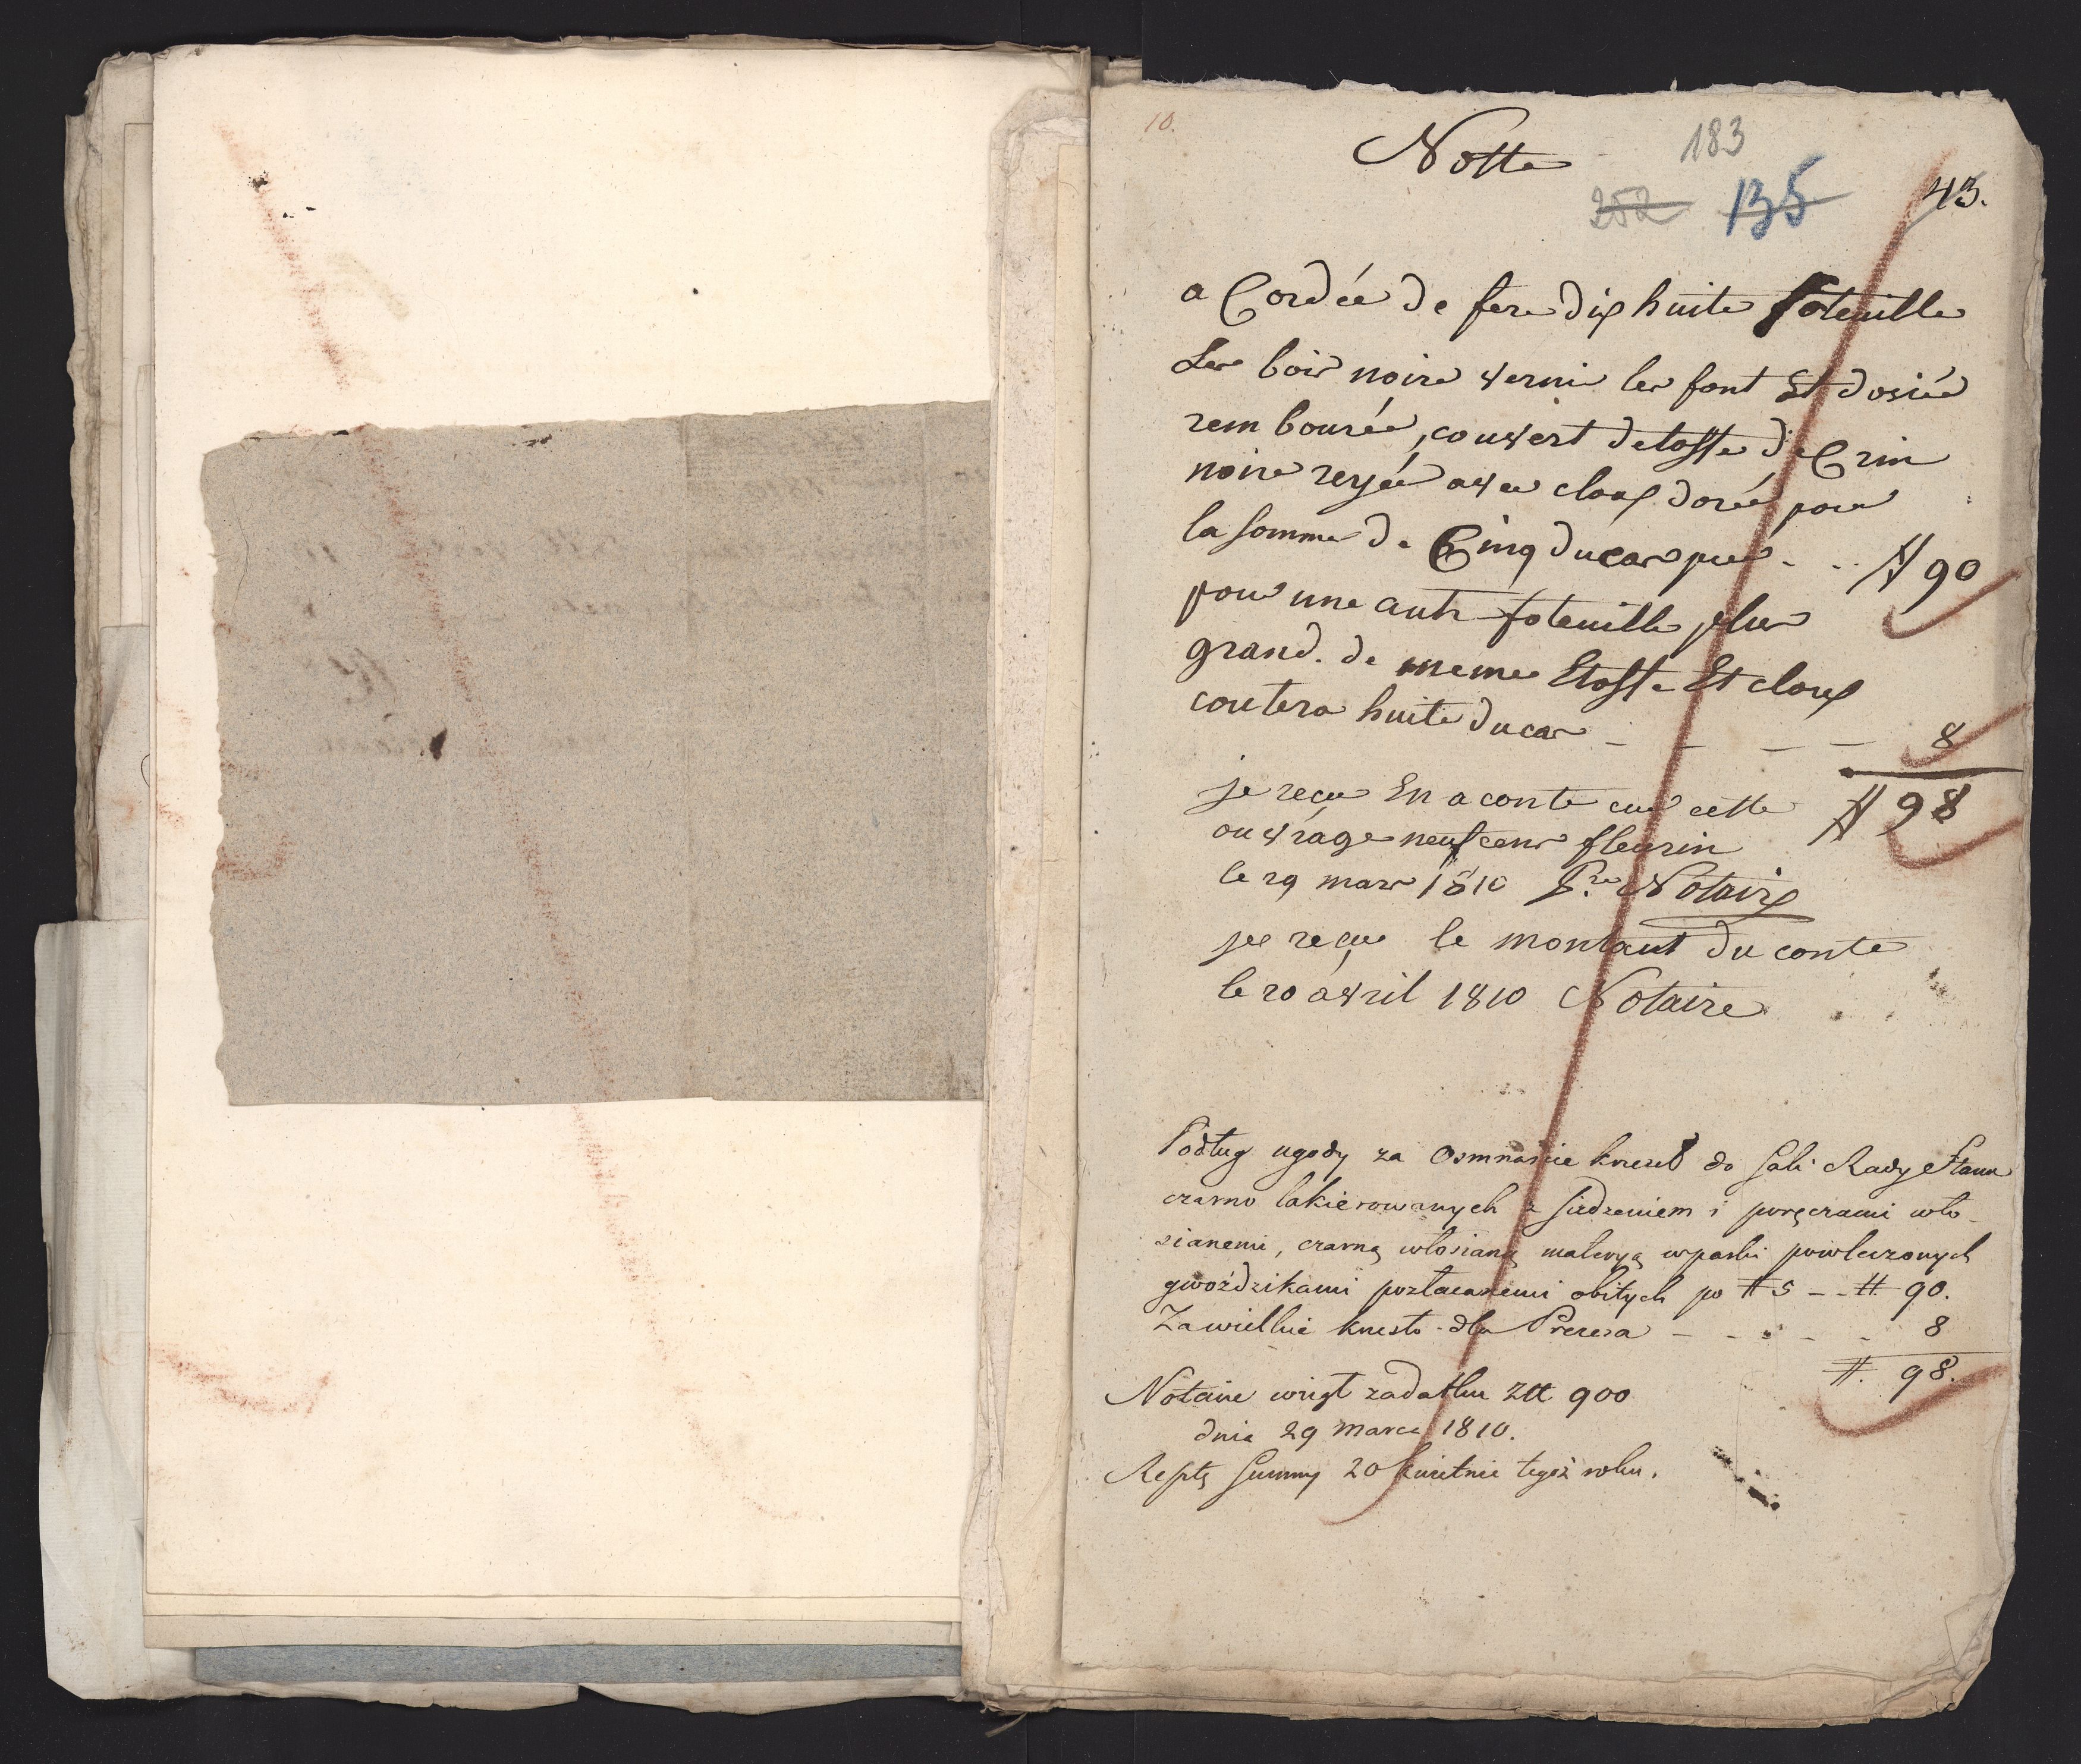 10.
Notte
183
252 135
43.
a Cordée de fere dix huite foteuille
Les bois noire verni les font Et dosiée
rem bourée, couvert detoffe de Crin
noire reyée avec cloux dorée pour
la somme de Cinq ducas pieé - .. # 90
pour une autre foteuille plus
grand. de meme Etoffe Et cloux
coutera huite ducas - - - - 8
# 98
je reçu En a conte cur cette
ouvrage neuf cens fleurin
le 29 mars 1810 Pre Notaire
je reçu le montant du conte
le 20 avril 1810 Notaire
Podług ugody za Osmnaście krzeseł do Sali Rady Stanu
czarno lakierowanych z siedzeniem i poręczami wło-
sianemi, czarną włosianą materyą w paski powleczonych
gwoździkami pozłacanemi obitych po # 5 - - # 90.
Za wielkie krzesło dla Prezesa - - - - - 8
#. 98.
Notaire wziął zadatku Złł 900
dnia 29 Marca 1810.
Resztę Summy 20 Kwietnia tegoż roku.